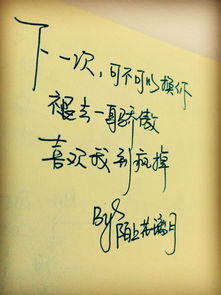 下一次，可不可以换你
褪去一身骄傲
喜欢我到疯掉
By:
陌上 月